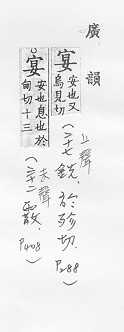 廣韻
宴 安也又
烏見切
上聲
七銑,於殄切.P288)
宴 安也息也於
甸切十三
去聲
二霰.P408)